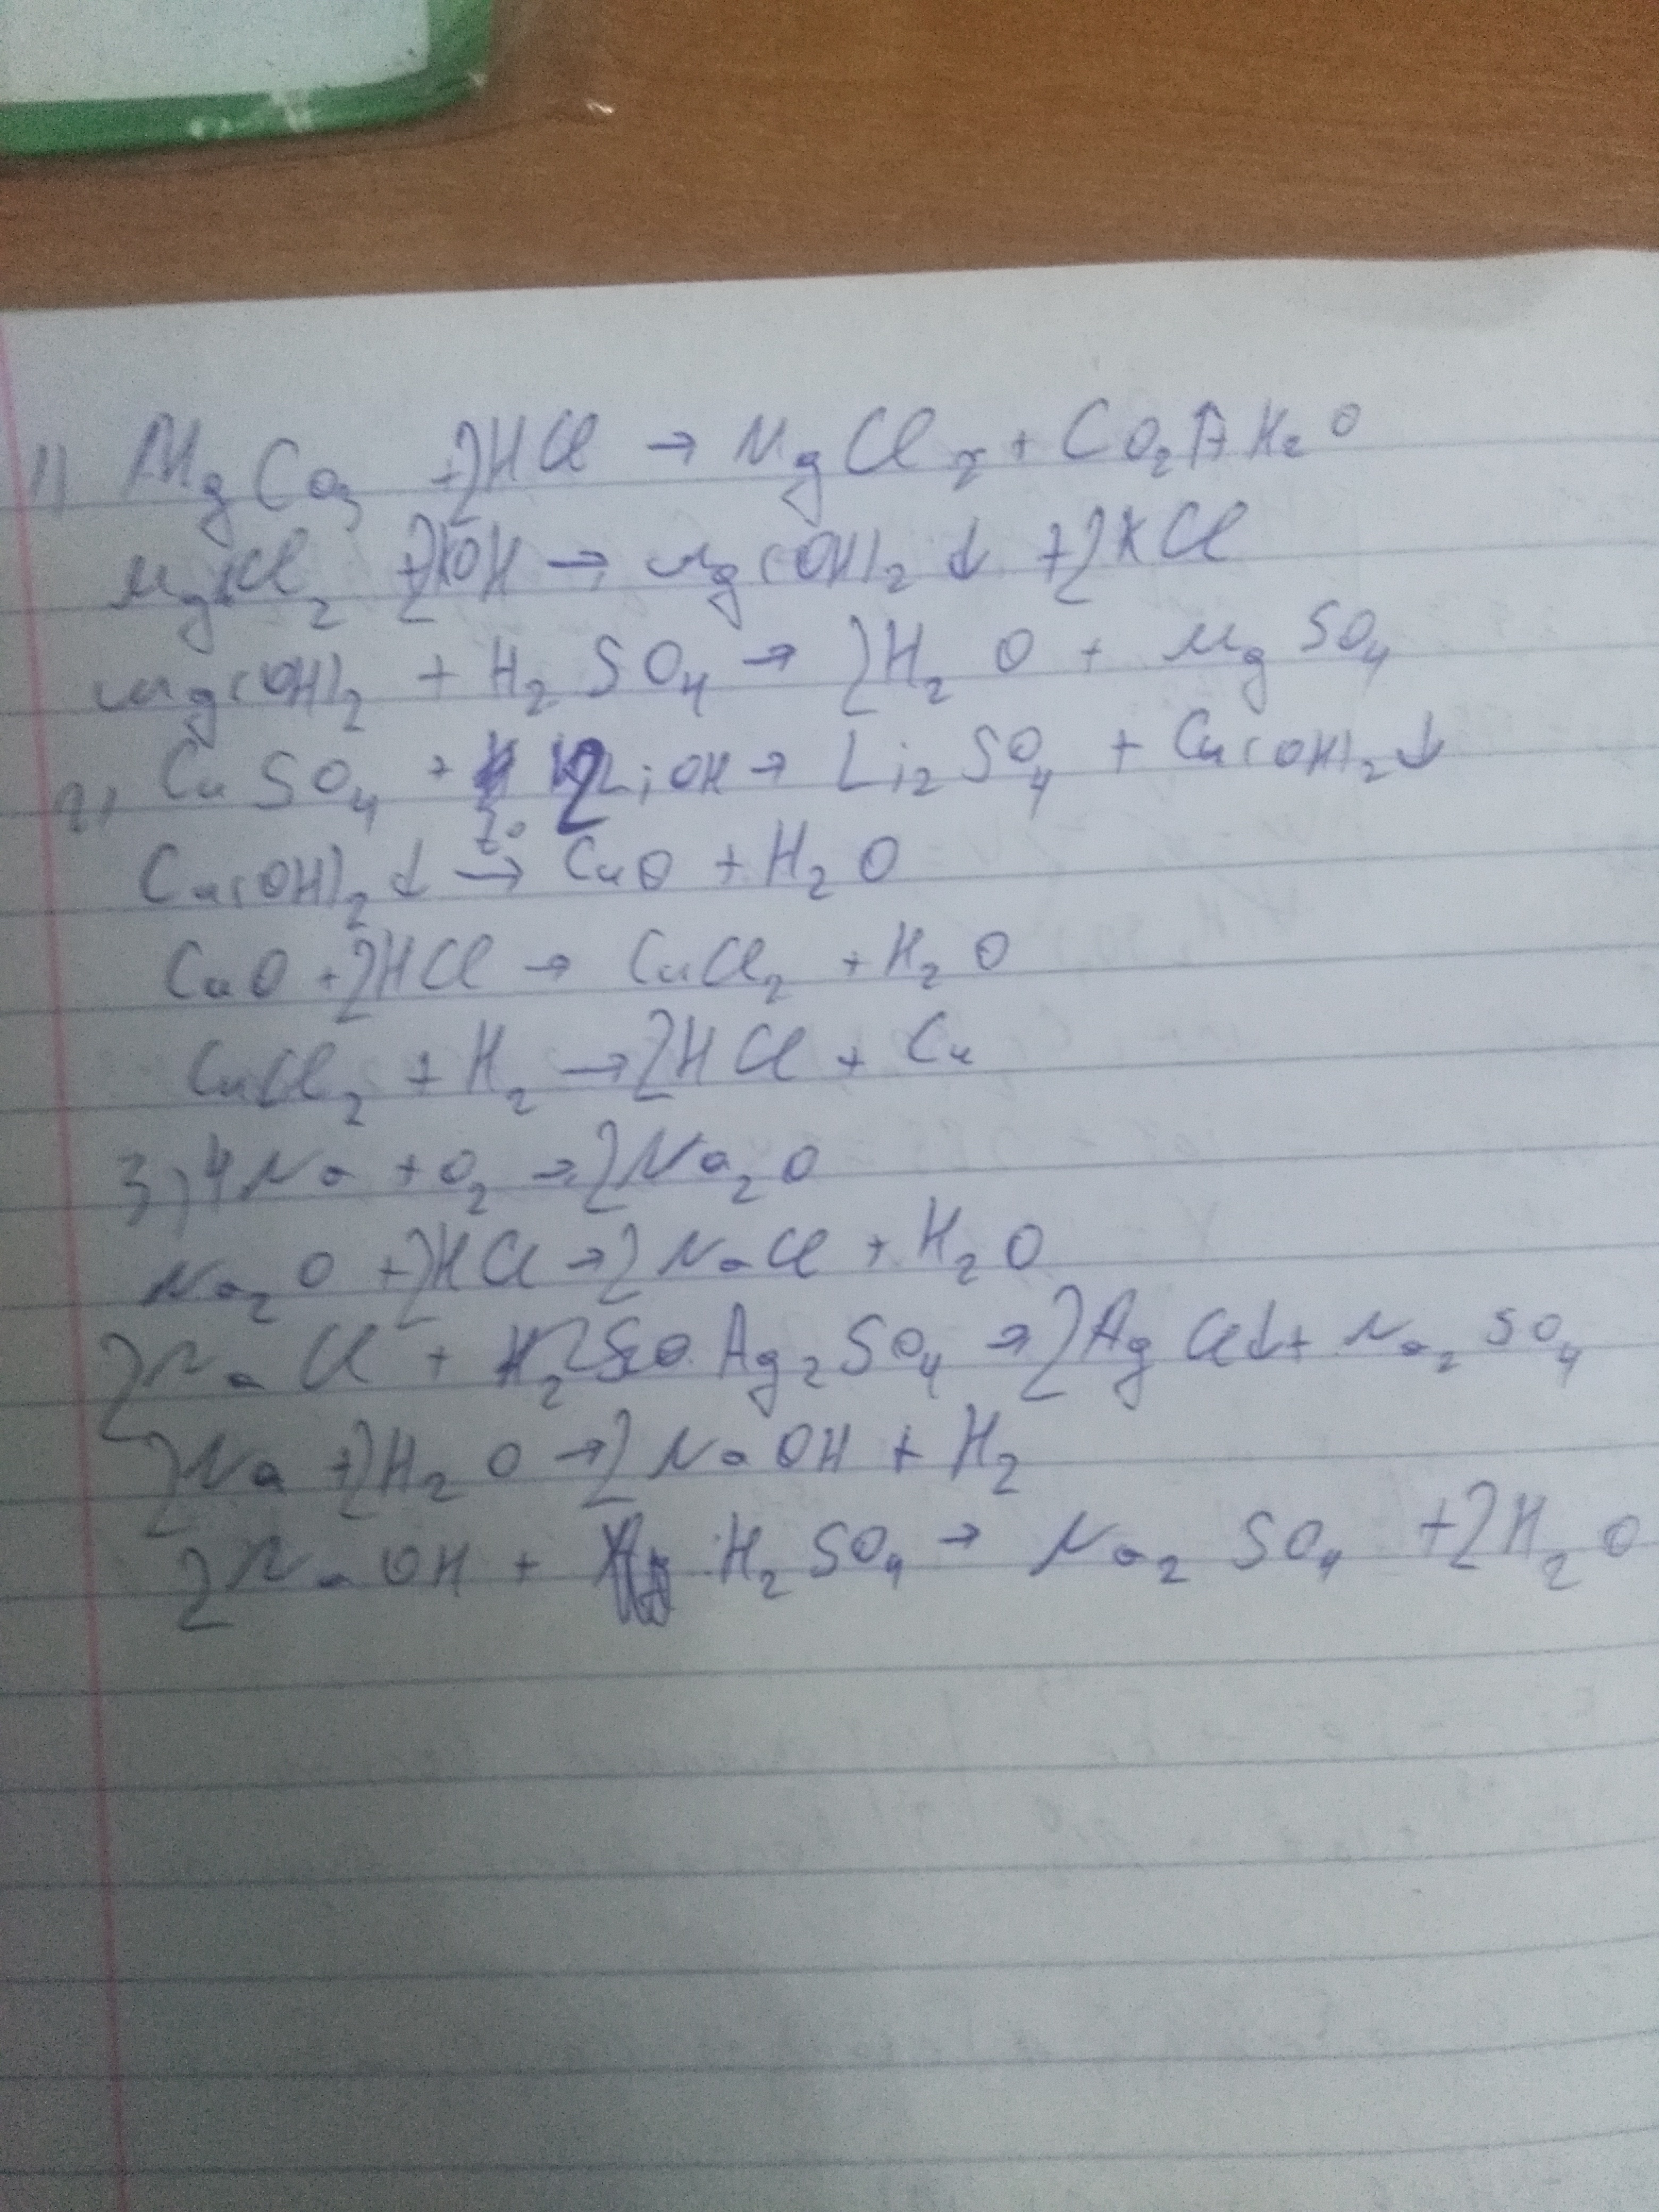 1) MgCO₃ + 2HCl → MgCl₂ + CO₂↑ + H₂O
MgCl₂ + 2KOH → Mg(OH)₂↓ + 2KCl
Mg(OH)₂ + H₂SO₄ → 2H₂O + MgSO₄
2) CuSO₄ + 2LiOH → Li₂SO₄ + Cu(OH)₂↓
Cu(OH)₂↓ t°→ CuO + H₂O
CuO + 2HCl → CuCl₂ + H₂O
CuCl₂ + H₂ → 2HCl + Cu
3) 4Na + O₂ → 2Na₂O
Na₂O + 2HCl → 2NaCl + H₂O
2NaCl + Ag₂SO₄ → 2AgCl↓ + Na₂SO₄
2Na + 2H₂O → 2NaOH + H₂
2NaOH + H₂SO₄ → Na₂SO₄ + 2H₂O